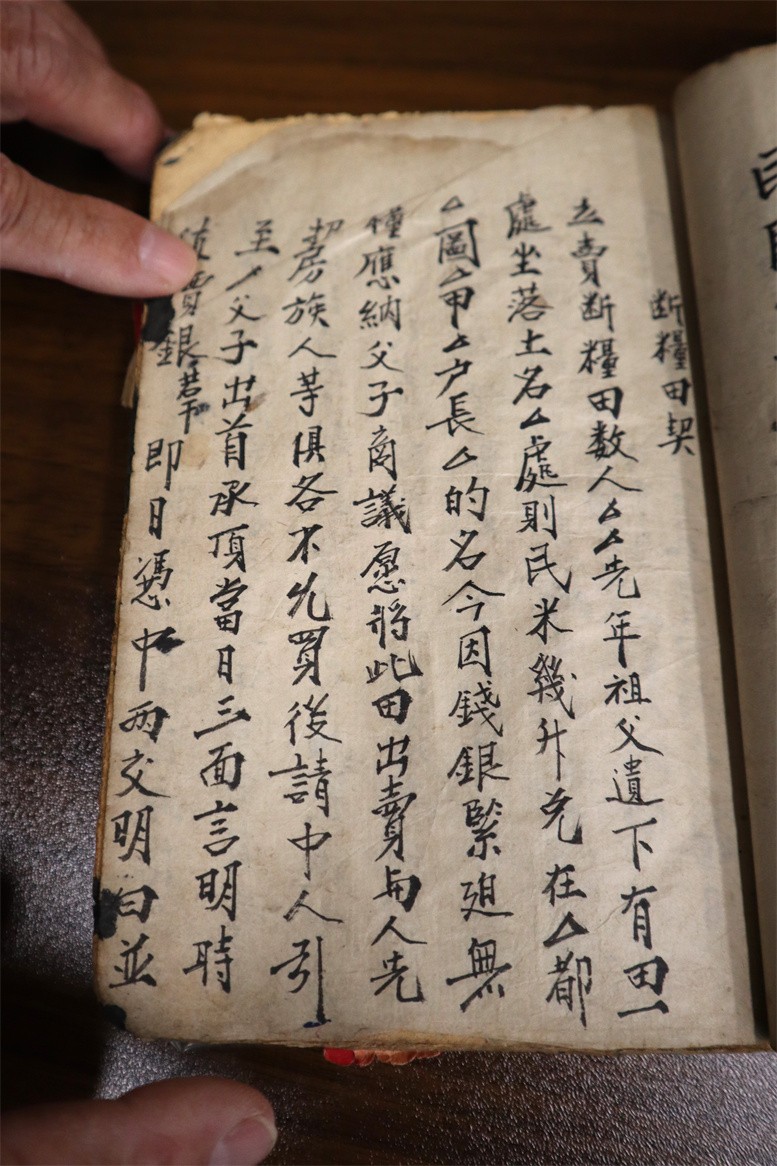 断糧田契
立賣断糧田数人厶厶先年祖父遺下有田一
處坐落土名厶處則民米幾升允在厶都
厶圖厶甲厶户長厶的名今因錢銀緊廹無
糧應納父子商議愿將此田出賣与人先
契房族人等俱各不允買後請中人引
至厶父子出首承頂當日三面言明時
價銀若干即日憑中兩交明白並